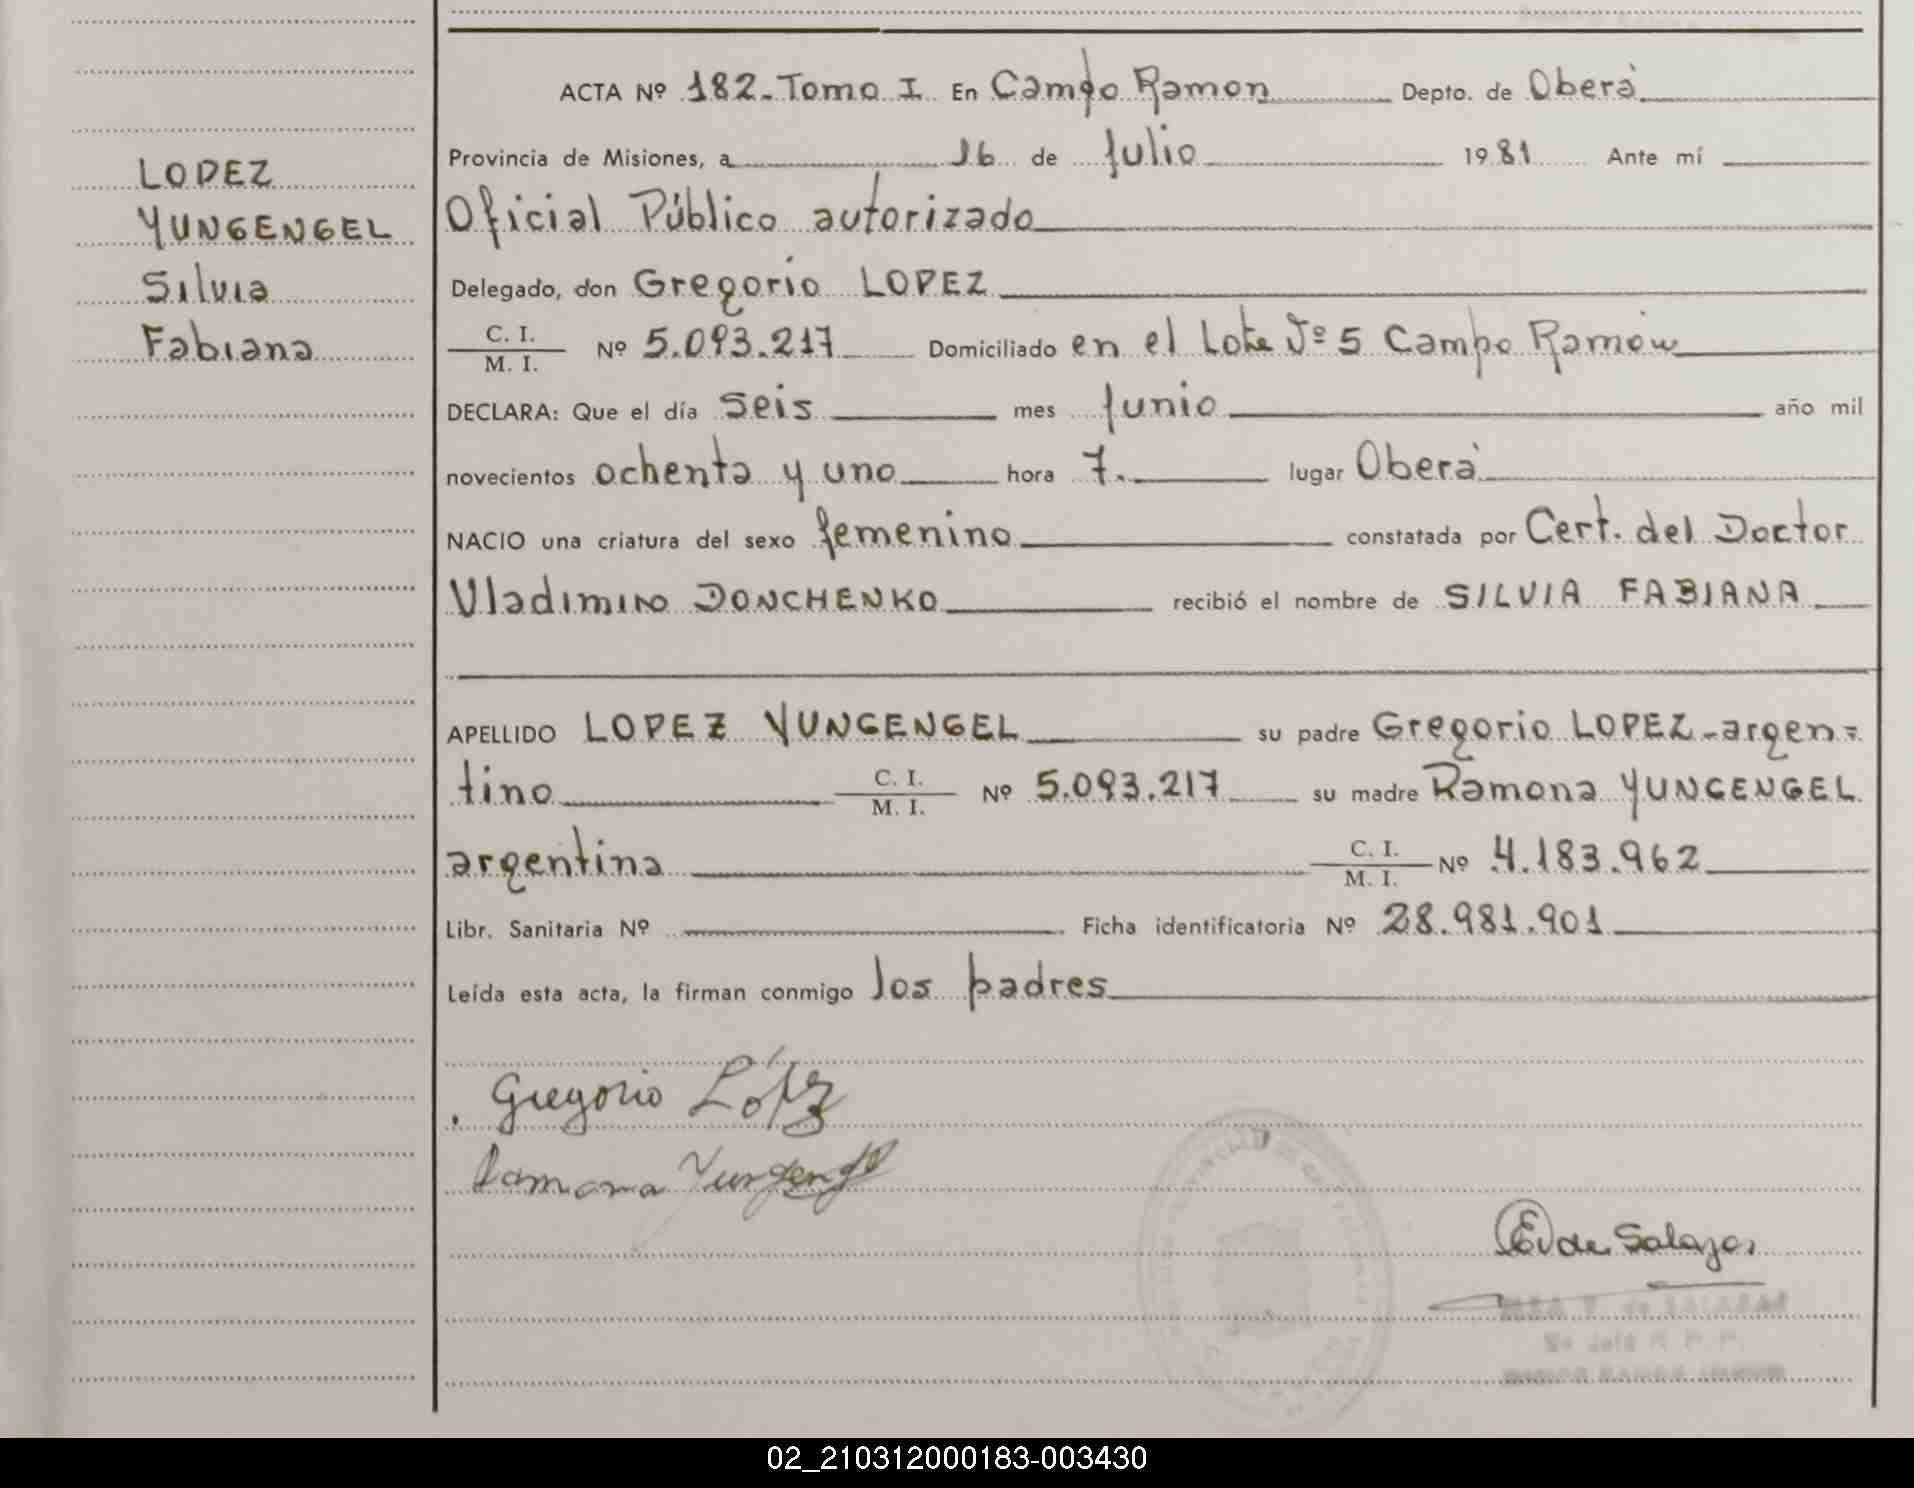 ACTA Nº 182-Tomo I En Campo Ramon Depto. de Oberá
Provincia de Misiones, a 16 de Julio 1981 Ante mí
Oficial Público autorizado
Delegado, don Gregorio LOPEZ
C. I.
M. I.
Nº 5.093.217 Domiciliado en el Lote Nº 5 Campo Ramón
DECLARA: Que el día seis mes Junio año mil
novecientos ochenta y uno hora 7. lugar Oberá
NACIO una criatura del sexo femenino constatada por Cert. del Doctor
Vladimiro DONCHENKO recibió el nombre de SILVIA FABIANA
APELLIDO LOPEZ YUNGENGEL su padre Gregorio LOPEZ-argen=
tino C. I. M. I. Nº 5.093.217 su madre Ramona YUNGENGEL
argentina C. I. M. I. Nº 4.183.962
Libr. Sanitaria Nº Ficha identificatoria Nº 28.981.901
Leída esta acta, la firman conmigo los padres
LOPEZ
YUNGENGEL
Silvia
Fabiana
Gregorio López
Ramona Yungengel
E V de Salazar
de SALAZAR
02_210312000183-003430